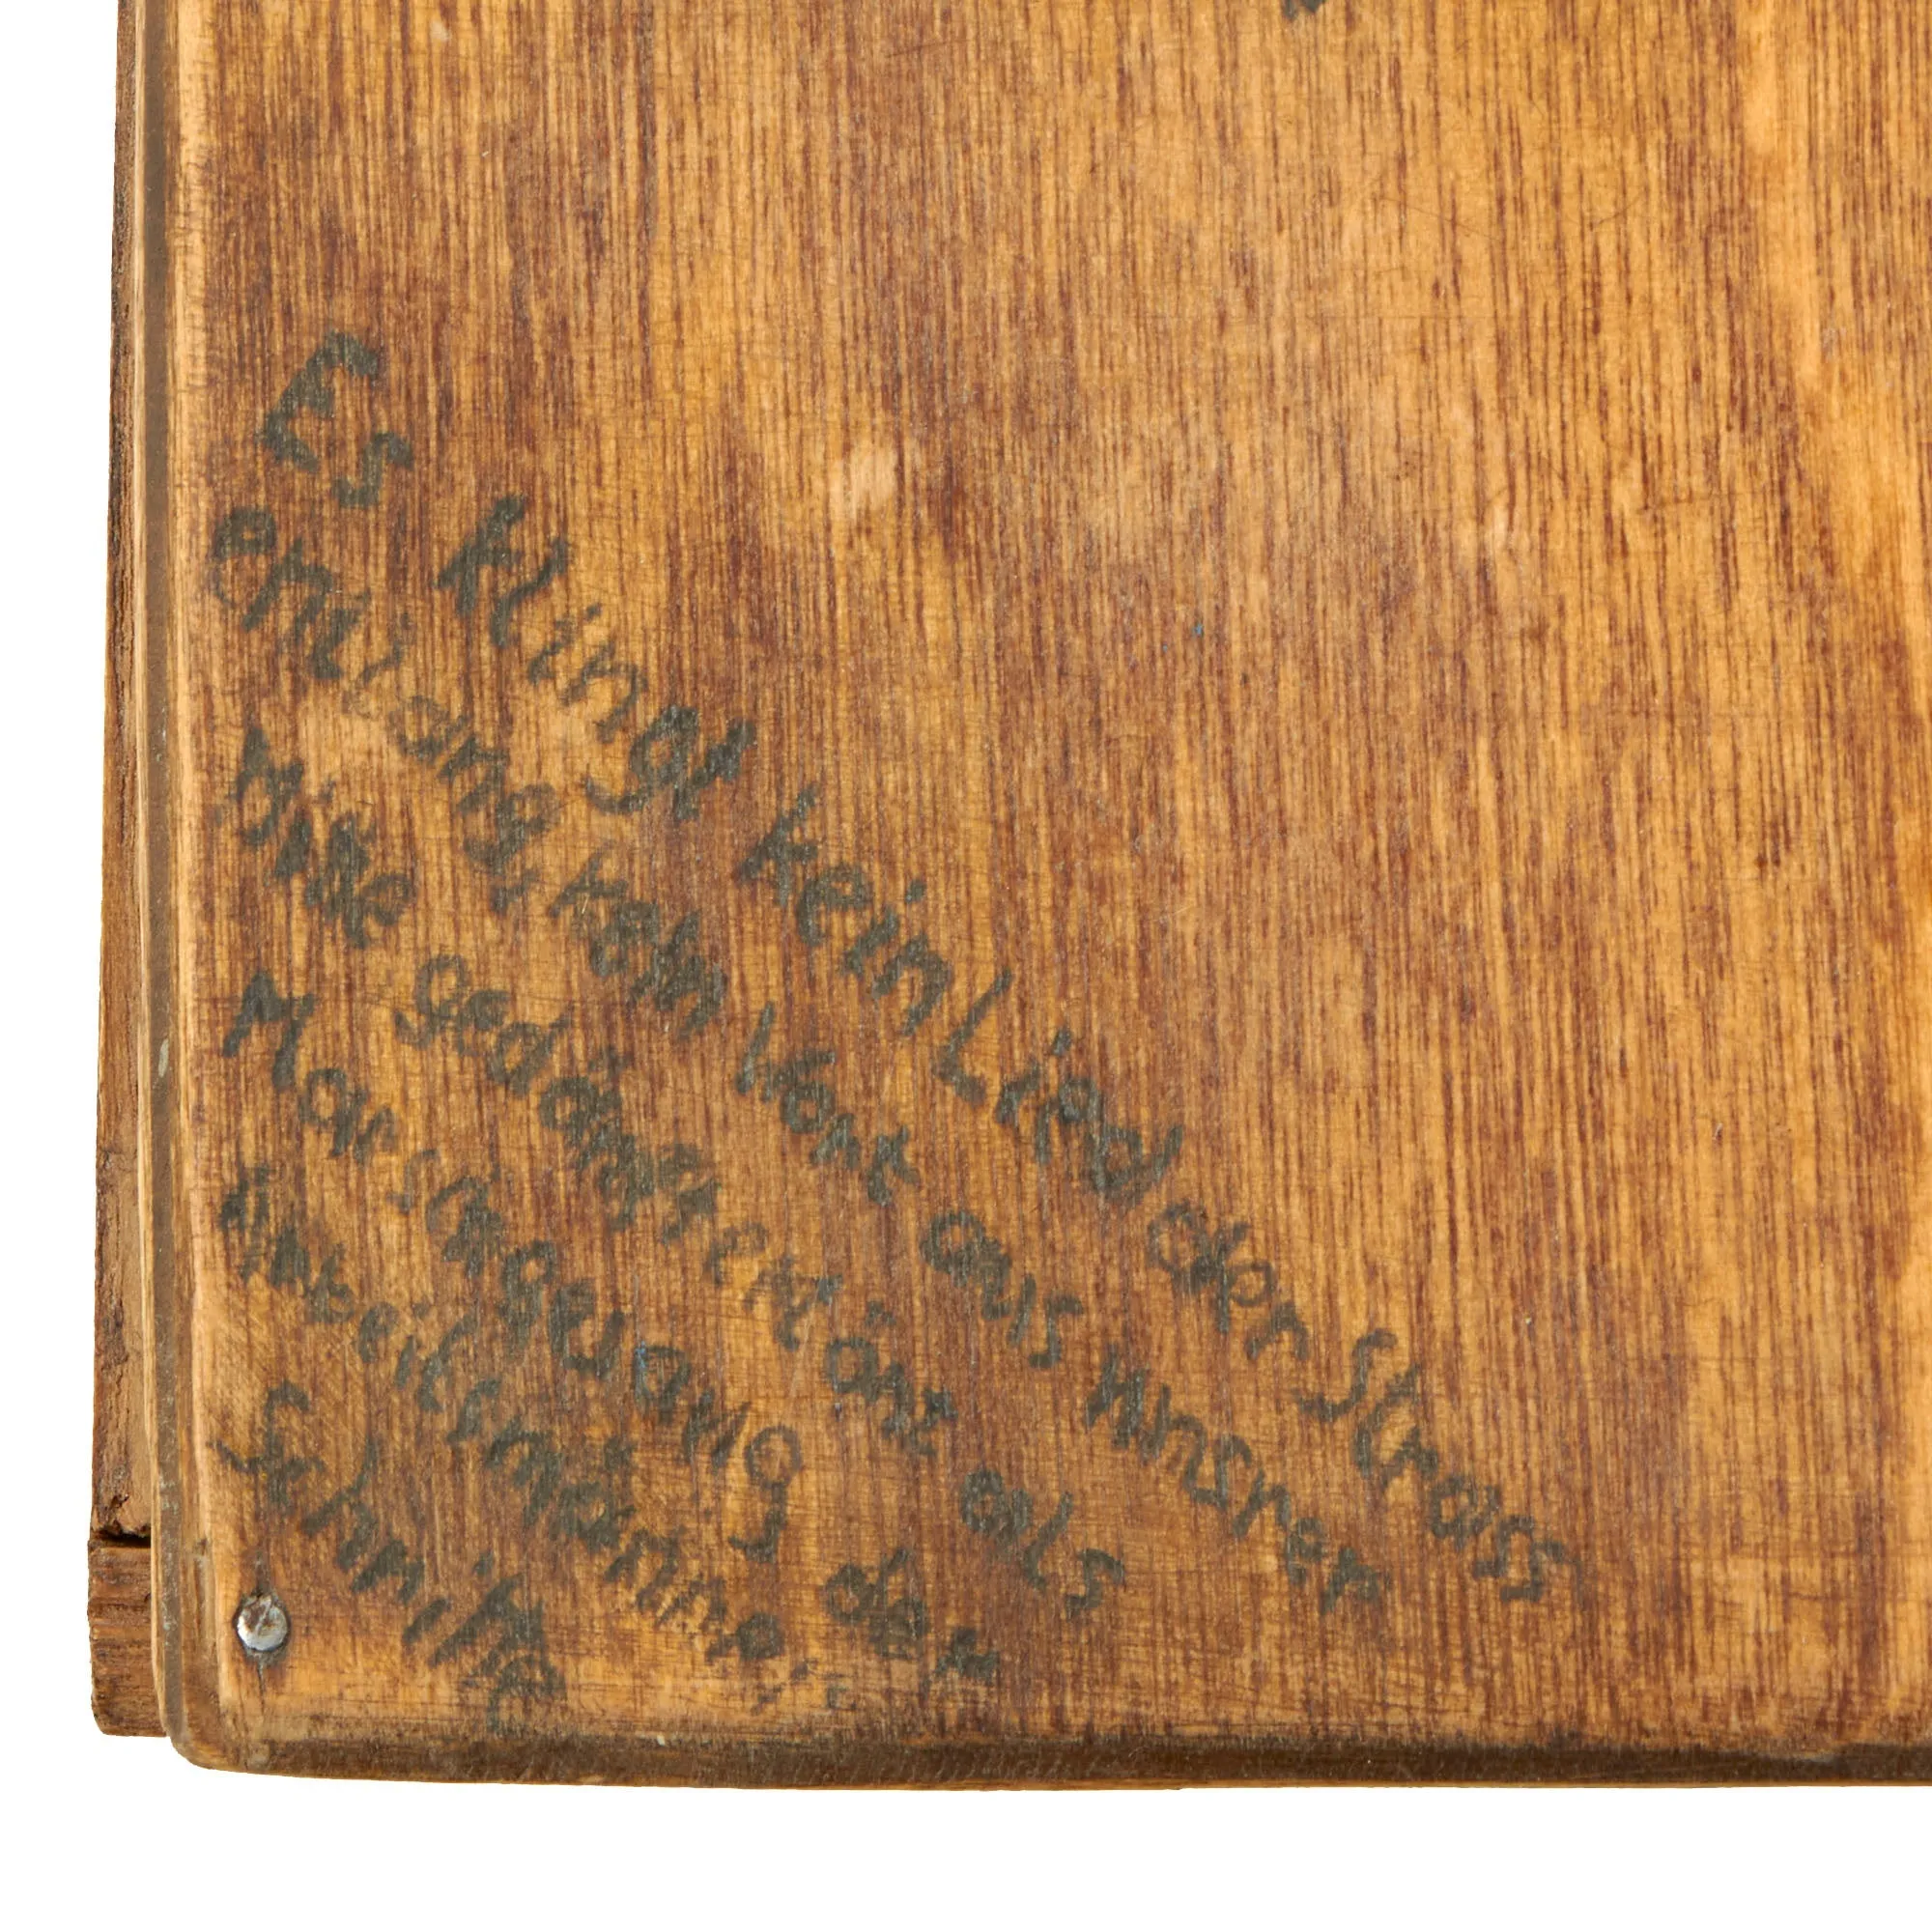 Es klingt kein Lied der Strass
entlang, kein Wort aus unsrer
bitte gedämpft als
Marschgesang der
Arbeitsmänner:
Schmitke